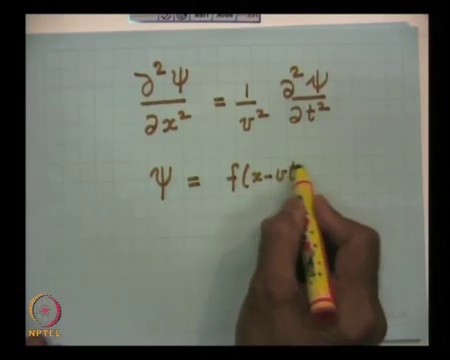 ∂²Ψ/∂x² = 1/v² ∂²Ψ/∂t²
Ψ = f(x-vt
NPTEL